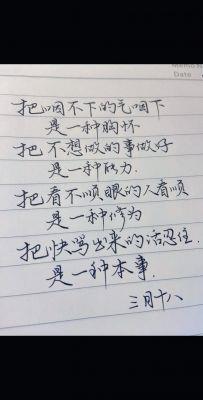 Memo No.
Date
把咽不下的气咽下
是一种胸怀
把不想做的事做好
是一种能力.
把看不顺眼的人看顺
是一种修为
把快骂出来的话忍住
是一种本事.
三月十八